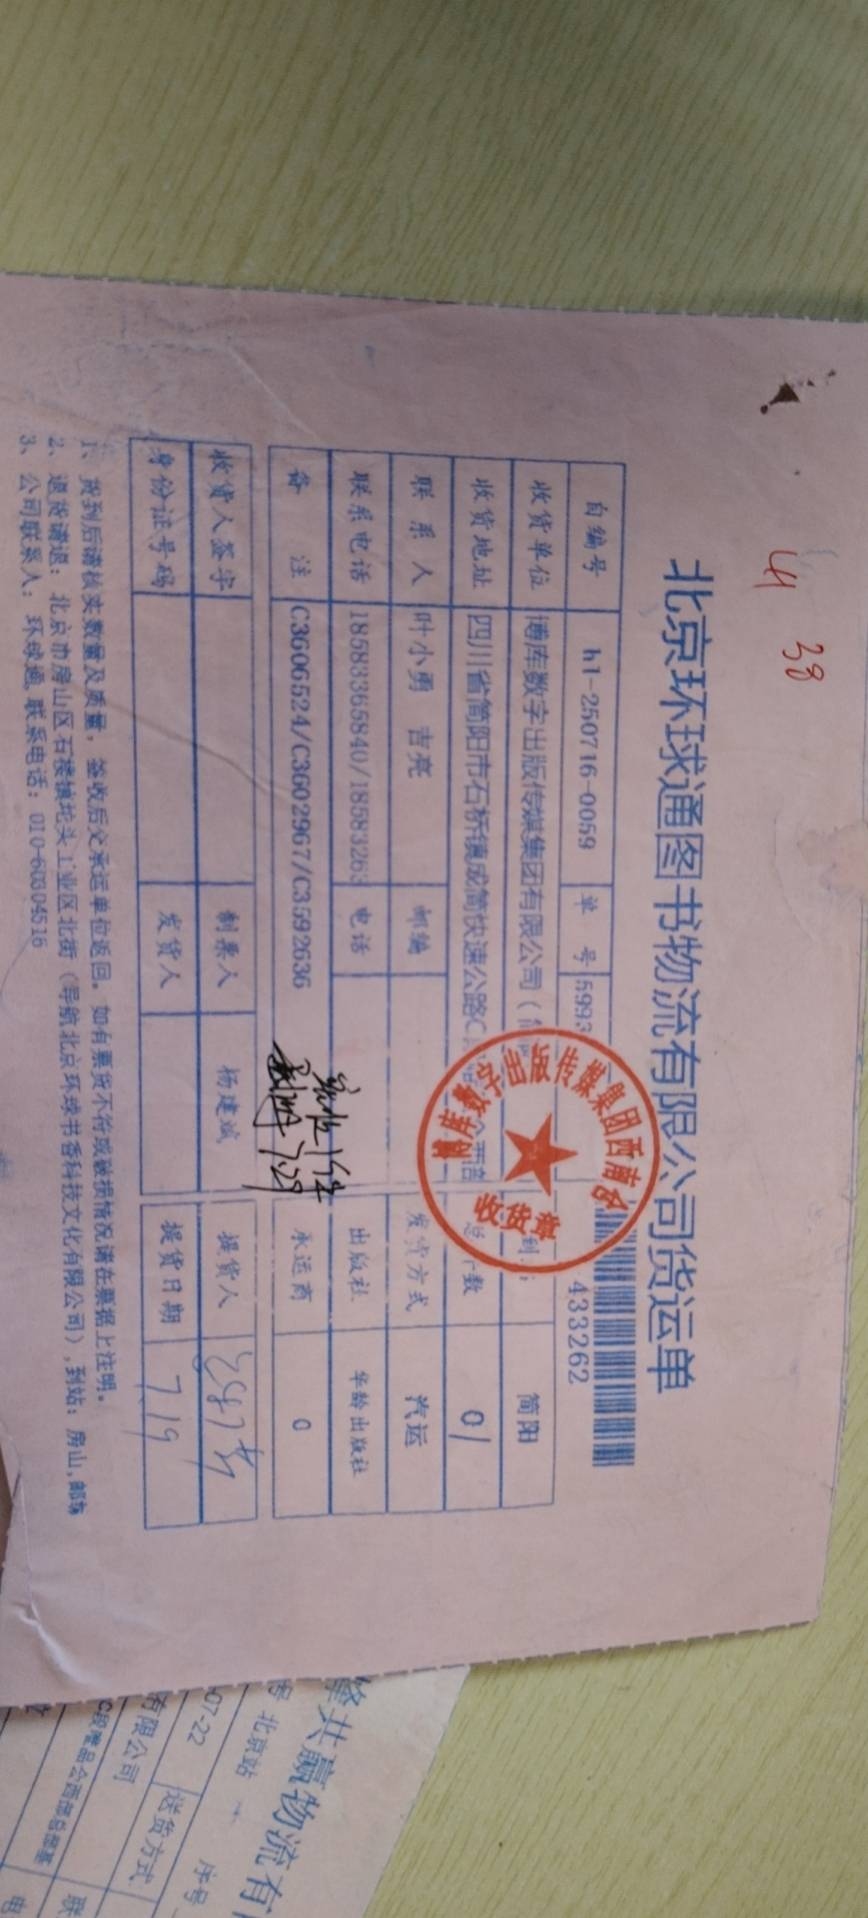 川 38
北京环球通图书物流有限公司货运单
自编号 h1-250716-0059 单 号 5993 433262
收货单位 博库数字出版传媒集团有限公司 简阳
收货地址 四川省简阳市石桥镇成简快速公路C 数 01
联系人 叶小勇 吉亮 邮编 发货方式 汽运
联系电话 18583365840/18583263 电话 出版社 华龄出版社
备 注 C3606524/C3602967/C3592636 承运商 0
7.29
收货人签字 制票人 杨建斌 提货人
身份证号码 发货人 提货日期 7.19
1、货到后请核实数量及质量，签收后交承运单位返回。如有票货不符或破损情况请在票据上注明。
2、退货请退：北京市房山区石楼镇坨头工业区北街（导航北京环球书香科技文化有限公司）,到站：房山,邮编
3、公司联系人：环球通,联系电话：010-60304516
数字出版传媒集团西南
收货章
共赢物流有
北京站
序号
07-22
有限公司 送货方式
联
电